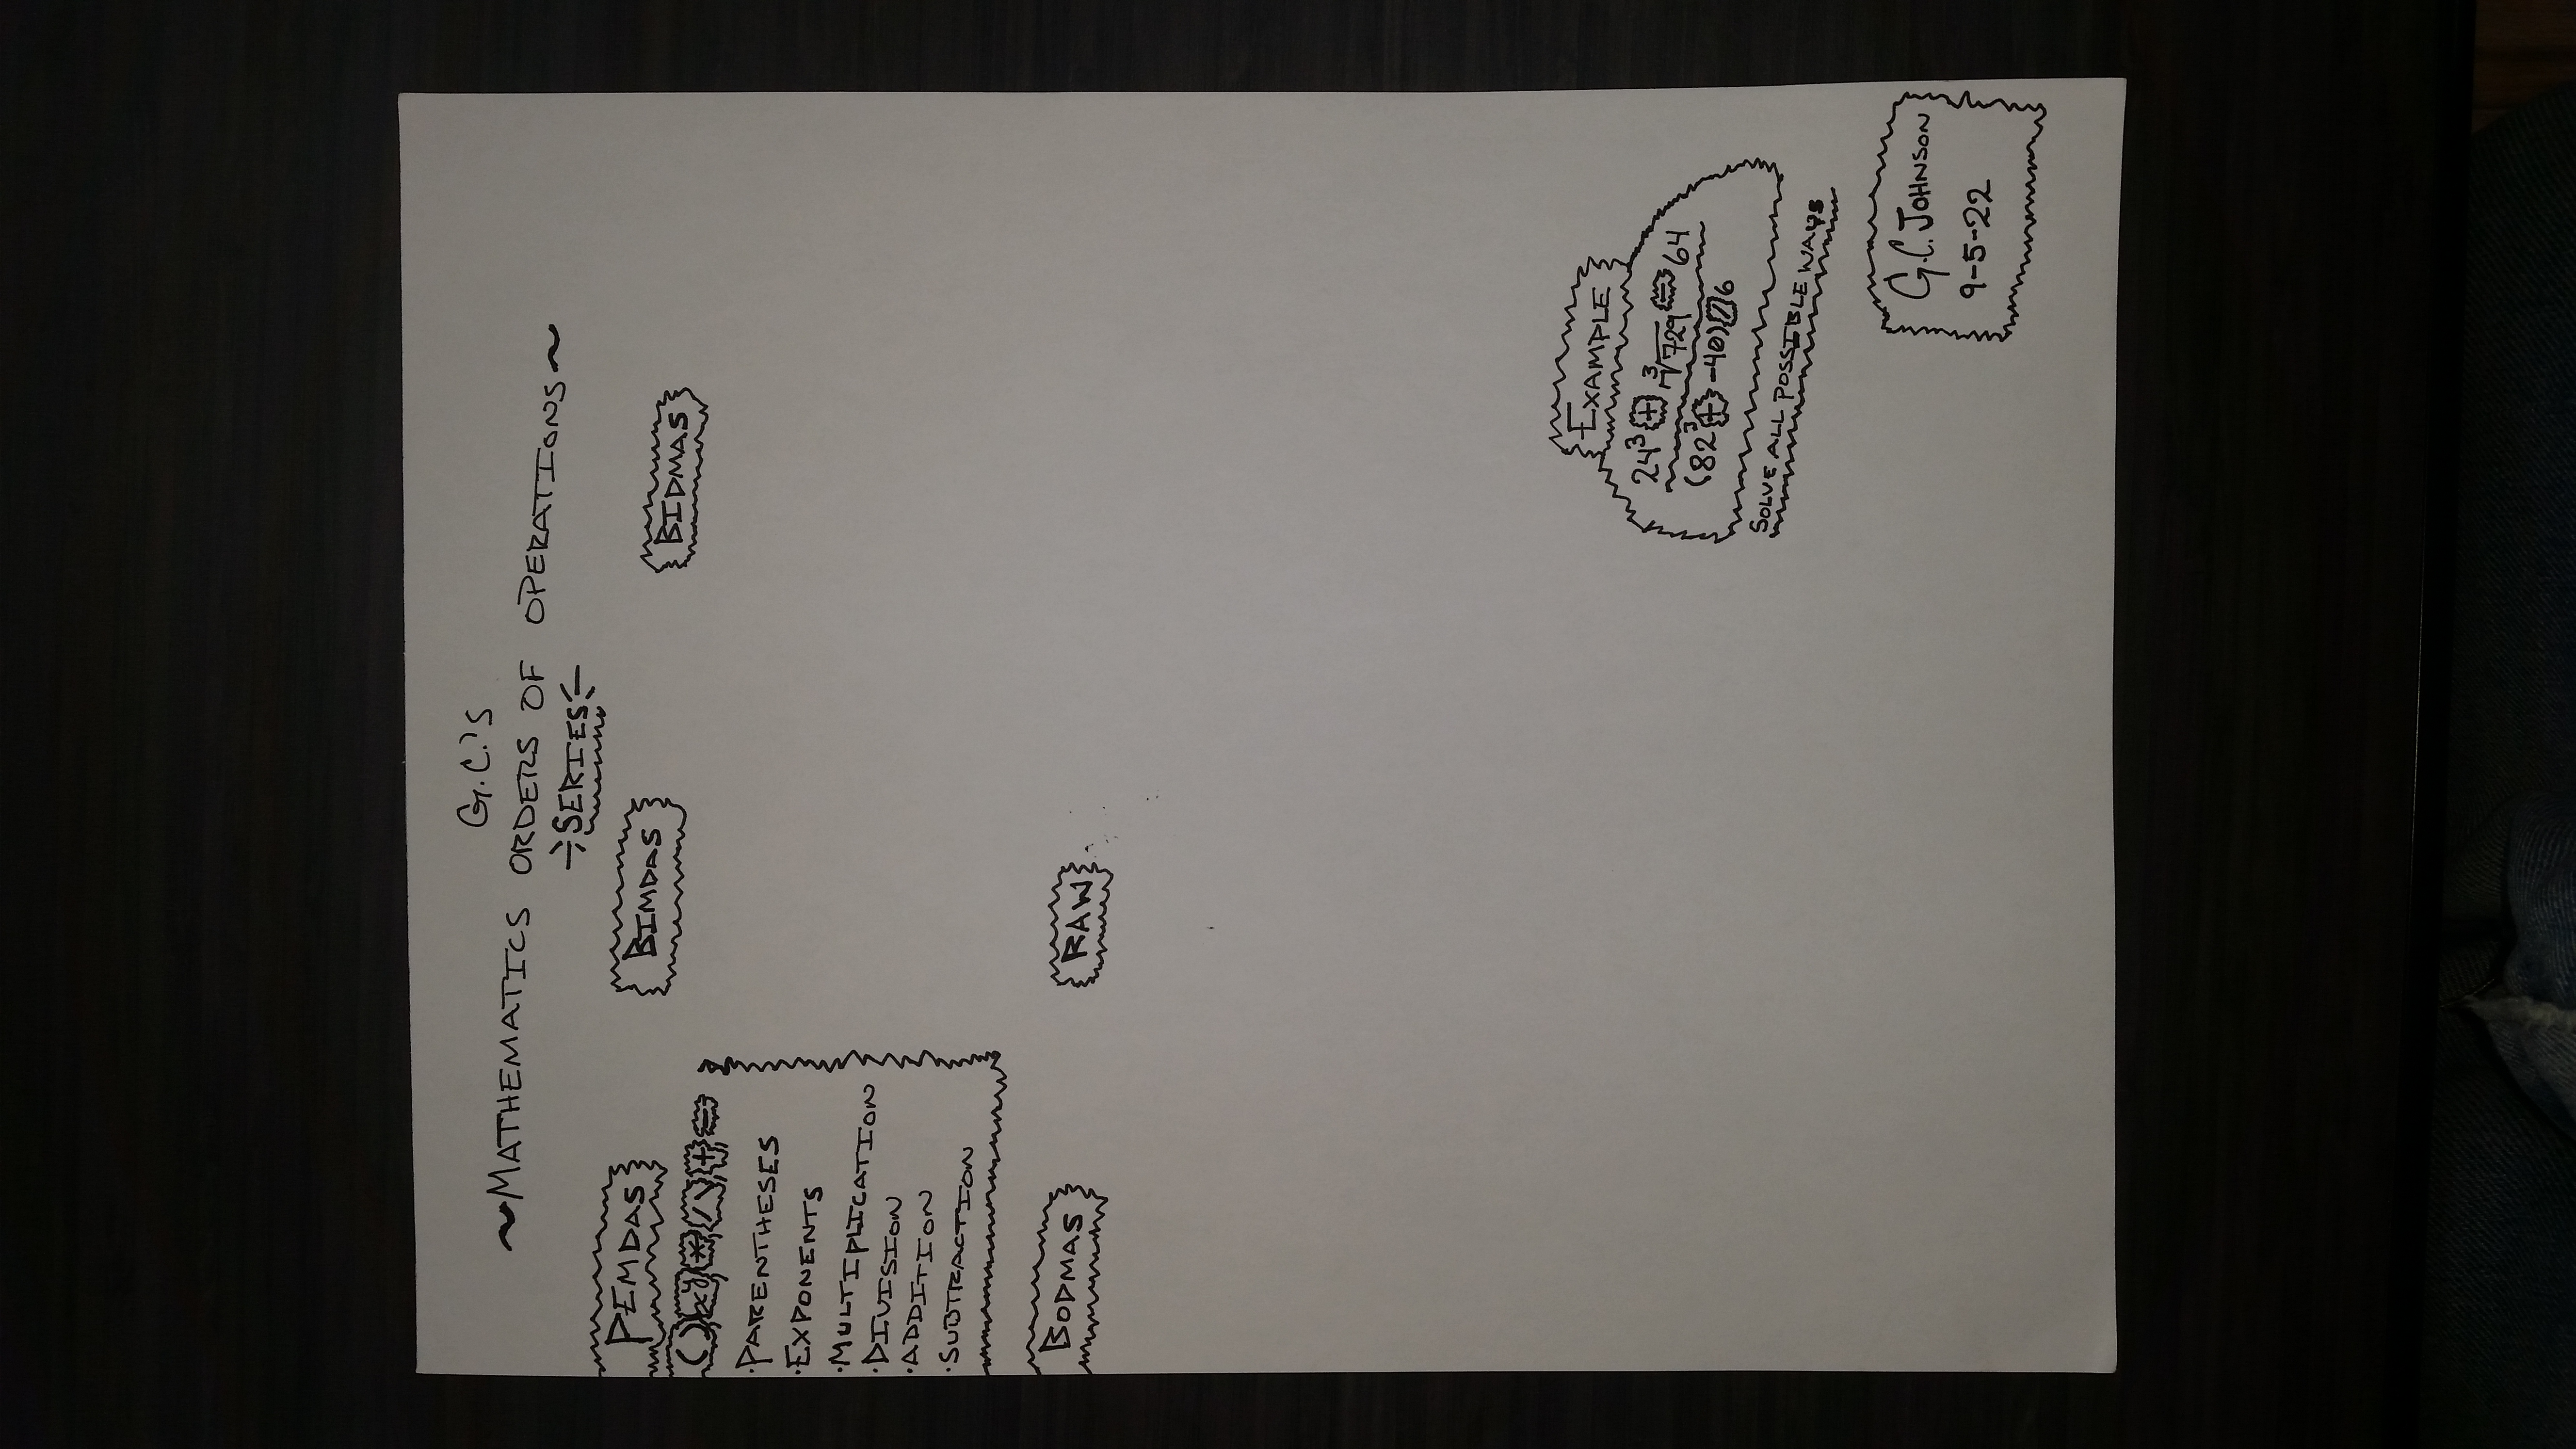 G.C.'s
~MATHEMATICS ORDERS OF OPERATIONS~
SERIES
PEMDAS
BIMDAS
BIDMAS
( ) xy * / + =
·PARENTHESES
·EXPONENTS
·MULTIPLICATION
·DIVISION
·ADDITION
·SUBTRACTION
BODMAS
RAW
EXAMPLE
24³ + ³√729 = 64
(82³ + -40) / 6
SOLVE ALL POSSIBLE WAYS
G.C. JOHNSON
9-5-22